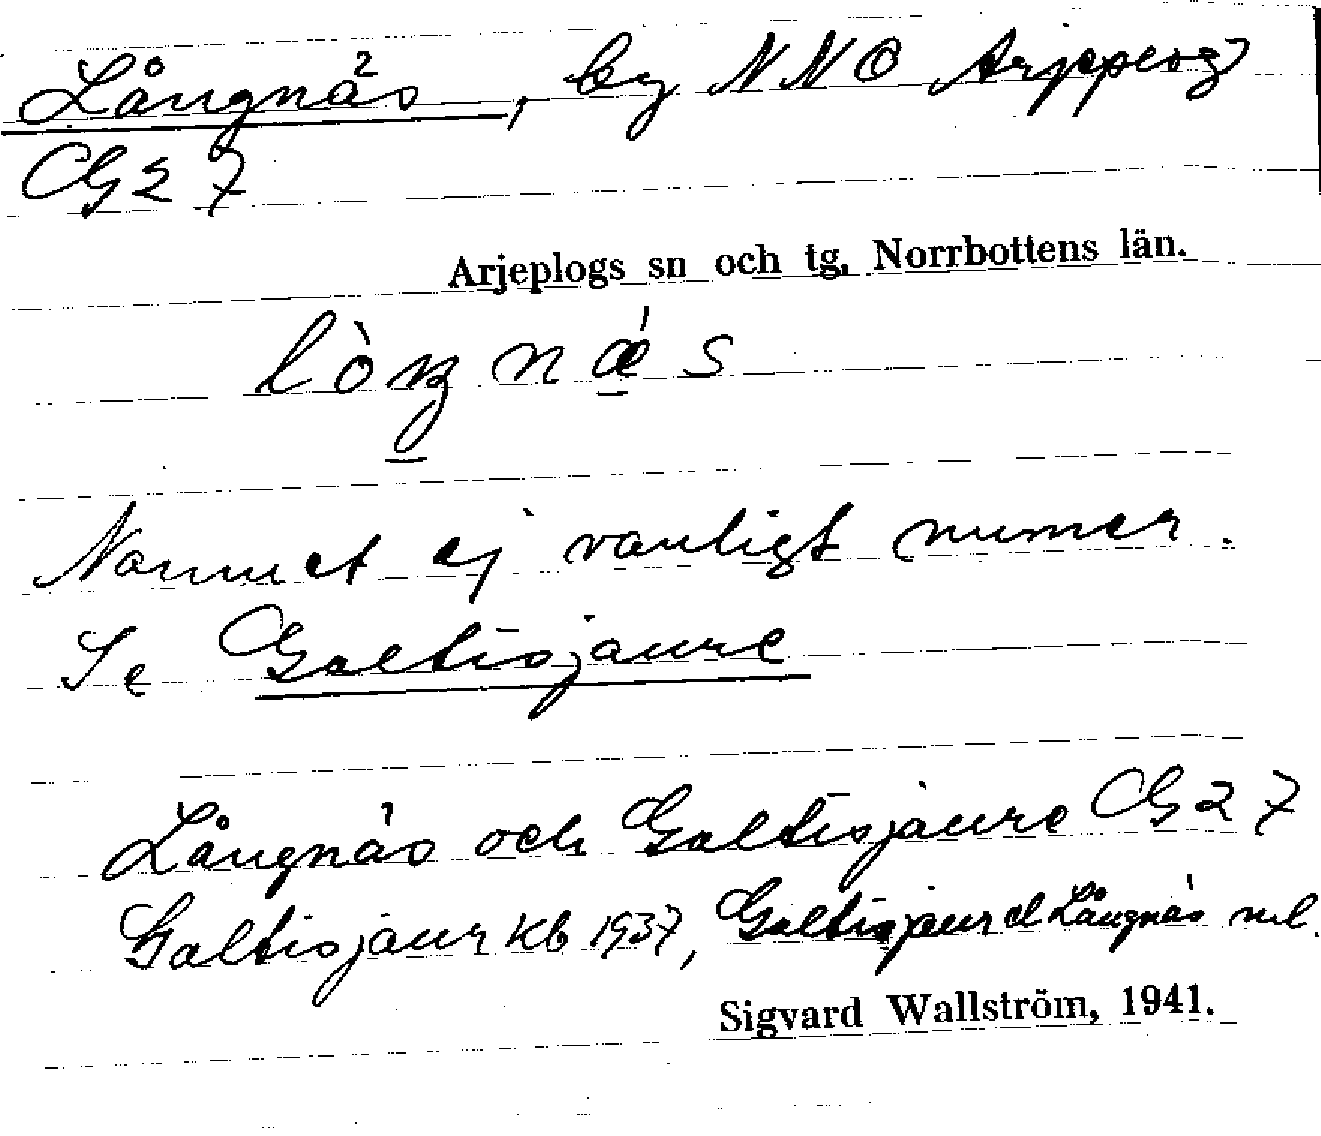 Långnäs, by NNO Arjeplog
CG 27
Arjeplogs sn och tg, Norrbottens län.
lòŋnǽs
Namnet ej vanligt numer.
Se Galtisjaure
Långnäs och Galtisjaure CG 27
Galtisjaur Kb 1937, Galtisjaur el Långnäs nul.
Sigvard Wallström, 1941.